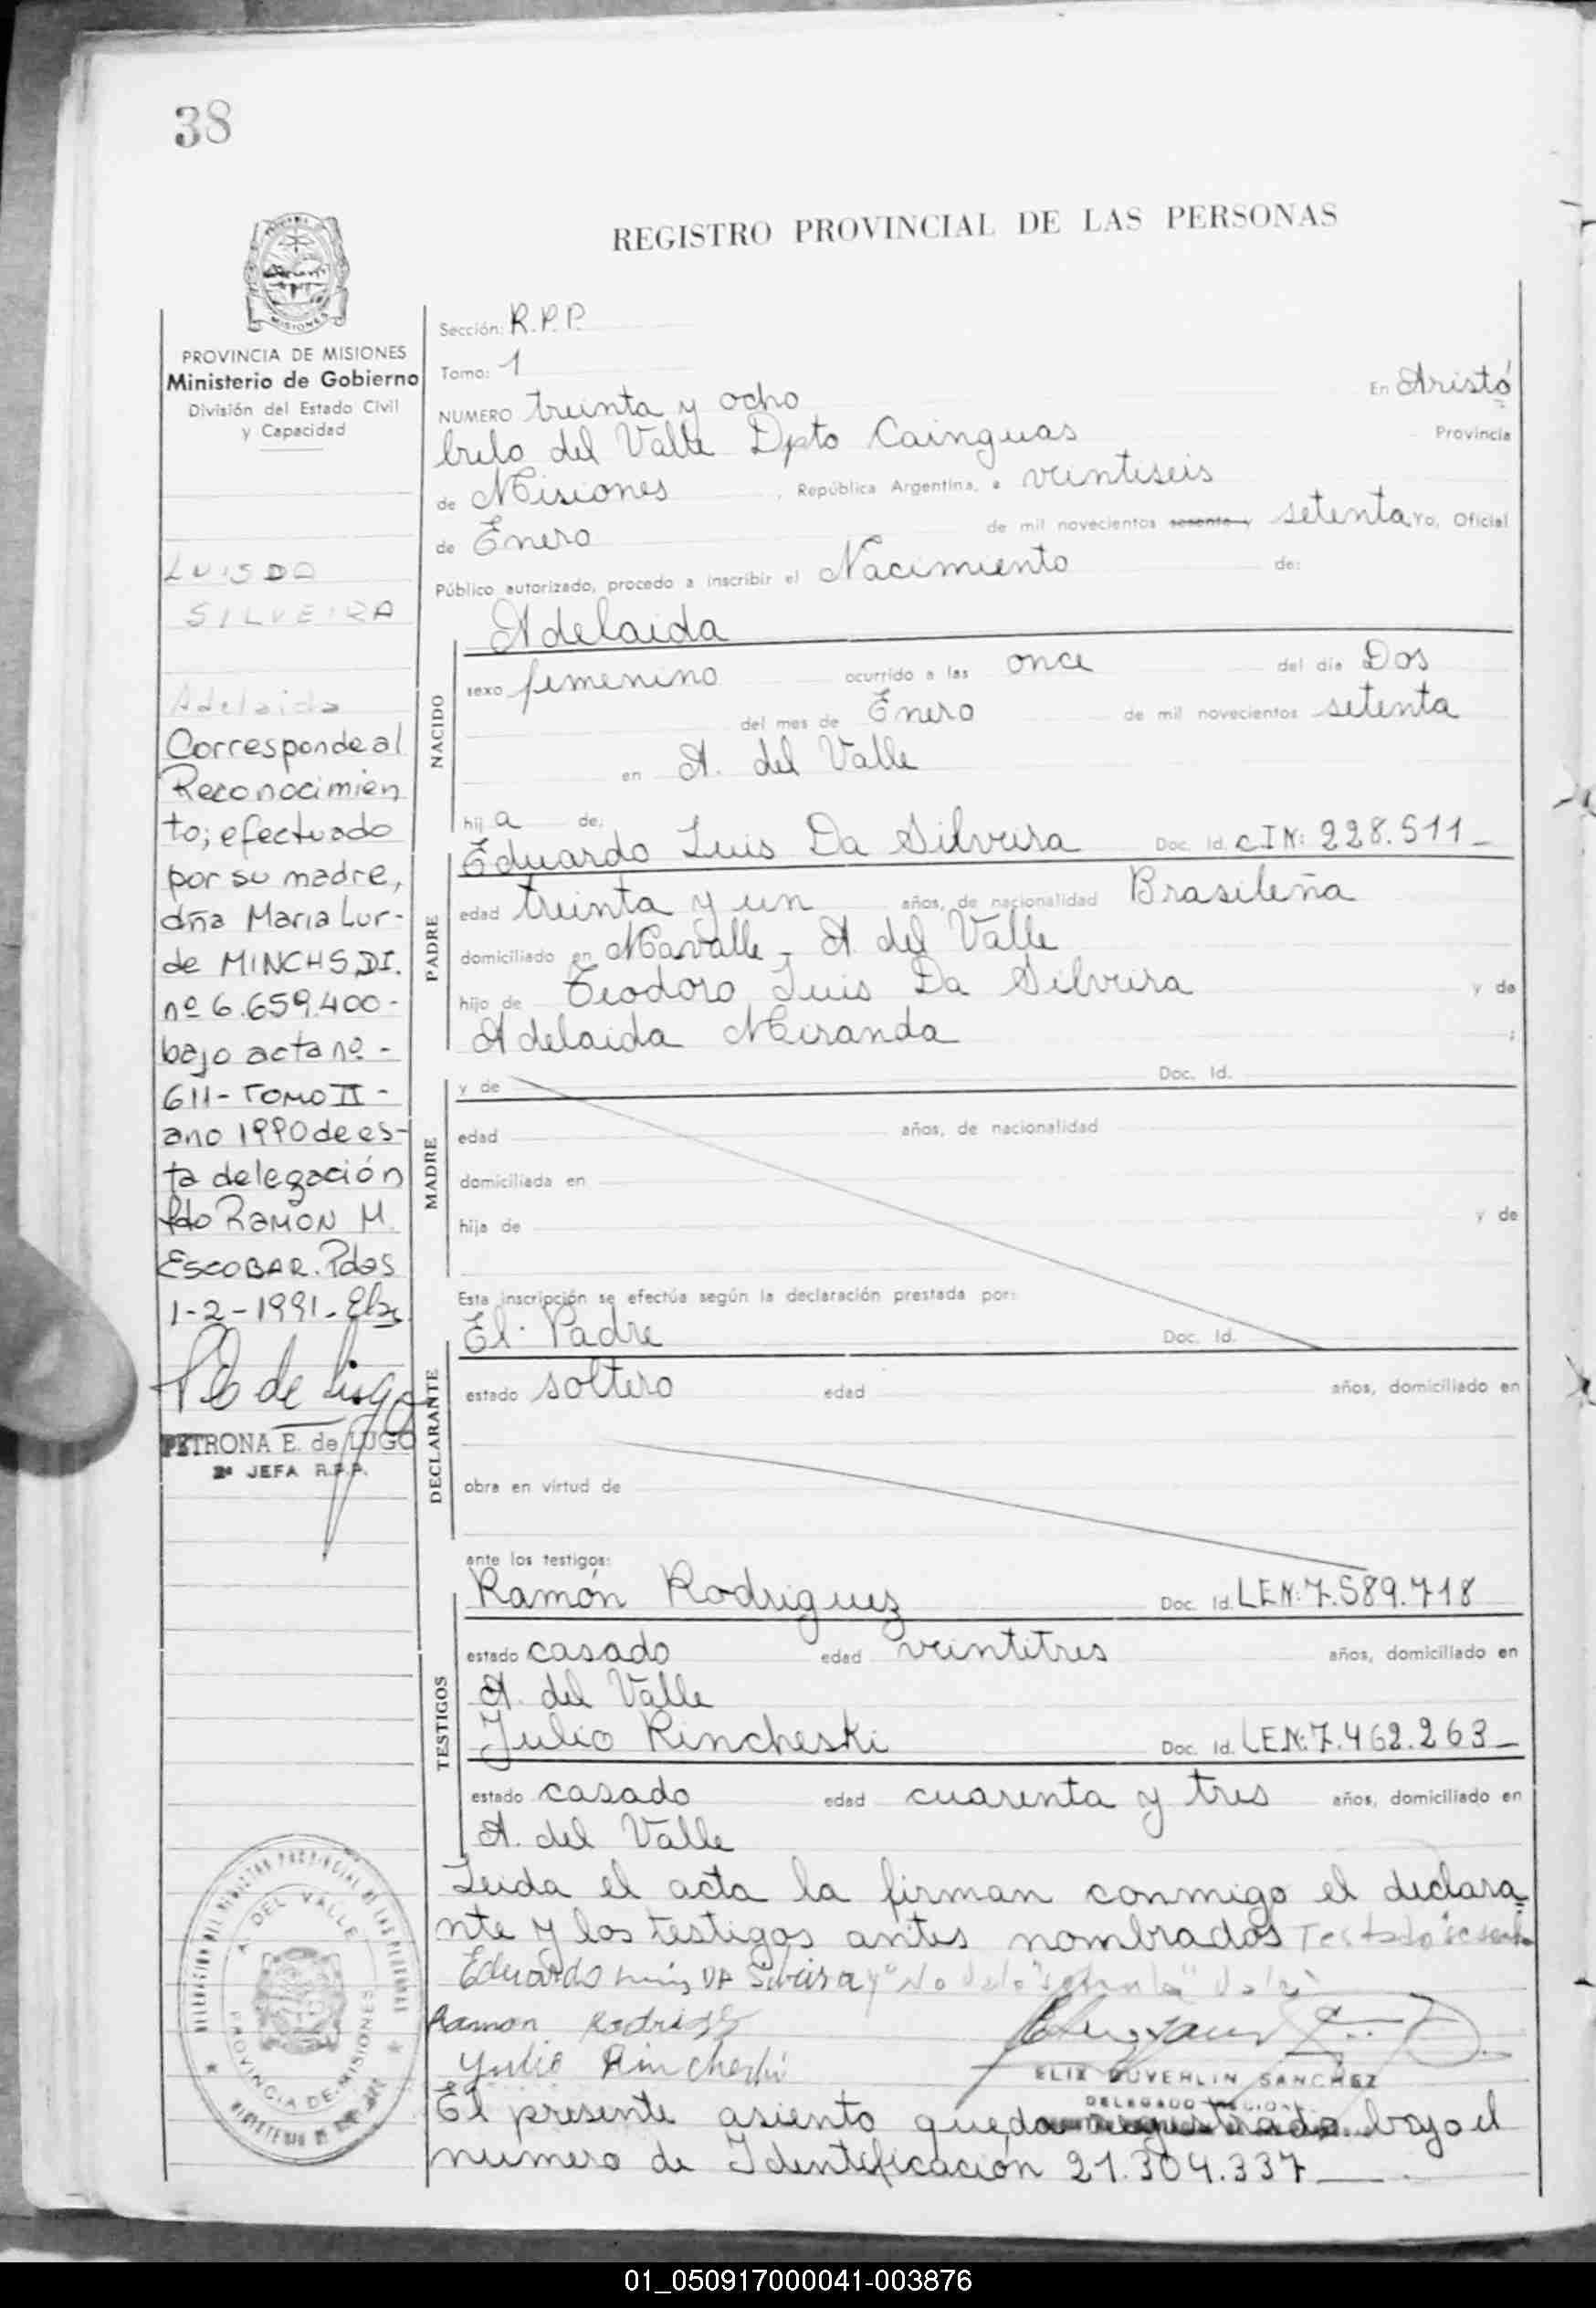 38
REGISTRO PROVINCIAL DE LAS PERSONAS
MISIONES
PROVINCIA DE MISIONES
Ministerio de Gobierno
División del Estado Civil
y Capacidad
LUIS DA
SILVEIRA
Adelaida
Corresponde al
Reconocimien
to; efectuado
por su madre,
dña Maria Lur-
de MINCHS, DI.
nº 6.659.400-
bajo acta nº-
611- TOMO II -
ano 1990 de es-
ta delegación
fdo RAMON M.
ESCOBAR. Pdas
1-2-1991-
PETRONA E. de LUGO
2ª JEFA R.P.P.
Sección: R.P.P.
Tomo: 1
NUMERO treinta y ocho En Aristó
bulo del Valle Dpto Cainguas Provincia
de Misiones, República Argentina, a veintiseis
de Enero de mil novecientos sesenta y setenta yo, Oficial
Público autorizado, procedo a inscribir el Nacimiento de:
Adelaida
NACIDO
sexo femenino ocurrido a las once del día Dos
del mes de Enero de mil novecientos setenta
en A. del Valle
hij a de:
Eduardo Luis Da Silveira Doc. Id. C.I.N: 228.511-
PADRE
edad treinta y un años, de nacionalidad Brasileña
domiciliado en Mavalle - A. del Valle
hijo de Teodoro Luis Da Silveira y de
Adelaida Miranda ;
MADRE
y de Doc. Id.
edad años, de nacionalidad
domiciliada en
hija de y de
Esta inscripción se efectúa según la declaración prestada por:
El Padre Doc. Id.
DECLARANTE
estado soltero edad años, domiciliado en
obra en virtud de
ante los testigos:
Ramón Rodriguez Doc. Id. LEN: 7.589.718
TESTIGOS
estado casado edad veintitres años, domiciliado en
A. del Valle
Julio Rincheski Doc. Id. LEN: 7.462.263-
estado casado edad cuarenta y tres años, domiciliado en
A. del Valle
Leida el acta la firman conmigo el declara
nte y los testigos antes nombrados Testado
Eduardo Luis DA Silveira
Ramon
Julio Rincheski
ELIX DUVERLIN SANCHEZ
DELEGADO
El presente asiento queda registrado bajo el
numero de Identificación 21.304.337
DELEGACION DEL REGISTRO PROVINCIAL DE LAS PERSONAS
A. DEL VALLE
PROVINCIA DE MISIONES
01_050917000041-003876